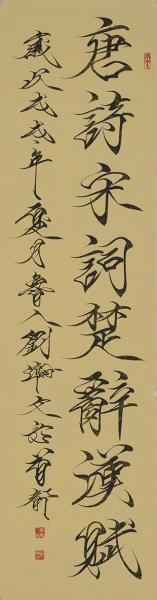 唐詩宋詞楚辭漢賦
歲次戊戌年夏月魯人劉瀚文於首都